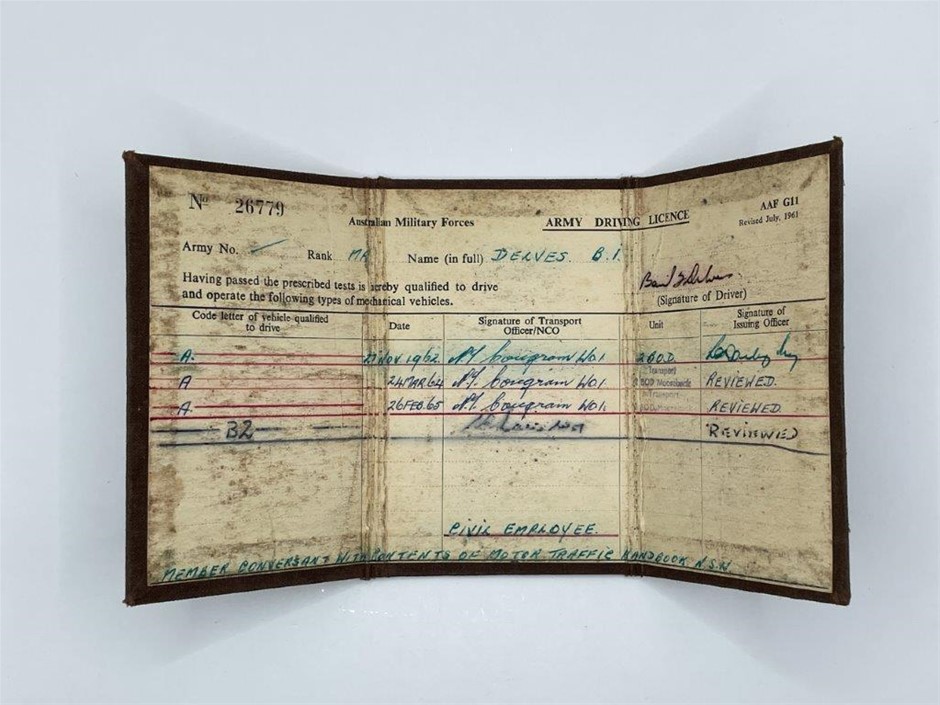 No 26779
AAF G11
Revised July, 1961
Australian Military Forces ARMY DRIVING LICENCE
Army No. Rank MR Name (in full) DELVES. B.I.
Having passed the prescribed tests is hereby qualified to drive
and operate the following types of mechanical vehicles.
(Signature of Driver)
Code letter of vehicle qualified
to drive
Date
Signature of Transport
Officer/NCO
Unit
Signature of
Issuing Officer
A. 21 NOV 1962 Cougram WO1 2 BOD.
Transport
A 24 MAR 64 Cougram WO1. BOD Moorebank REVIEWED.
Transport
A 26 FEB 65 Cougram WO1. REVIEWED
B2 REVIEWED
CIVIL EMPLOYEE.
MEMBER CONVERSANT WITH CONTENTS OF MOTOR TRAFFIC HANDBOOK N.S.W